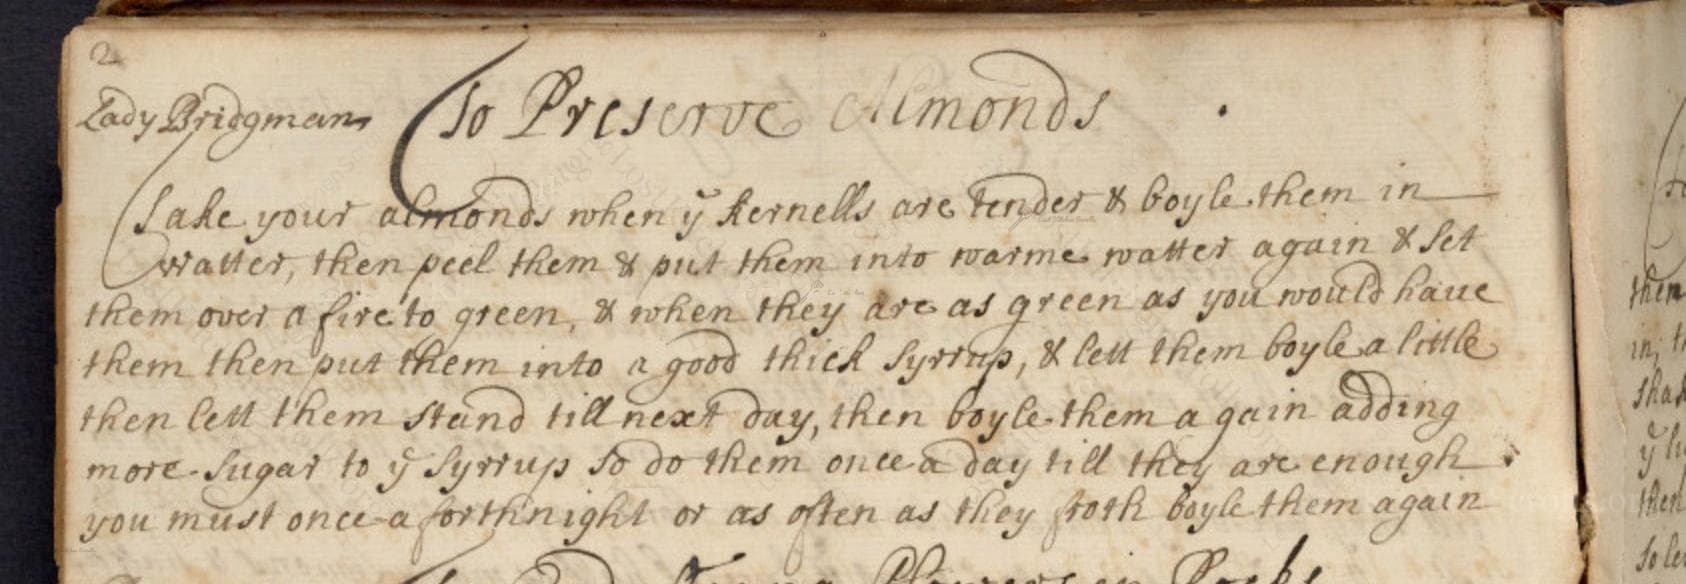 2
Lady Bridgman
To Preserve Almonds
Take your almonds when yͤ kernells are tender & boyle them in
watter, then peel them & put them into warme watter again & set
them over a fire to green, & when they are as green as you would haue
them then put them into a good thick syrrup, & lett them boyle a little
then lett them stand till next day, then boyle them a gain adding
more sugar to yͤ syrrup so do them once a day till they are enough
you must once a forthnight or as often as they froth boyle them again
them
in,
then